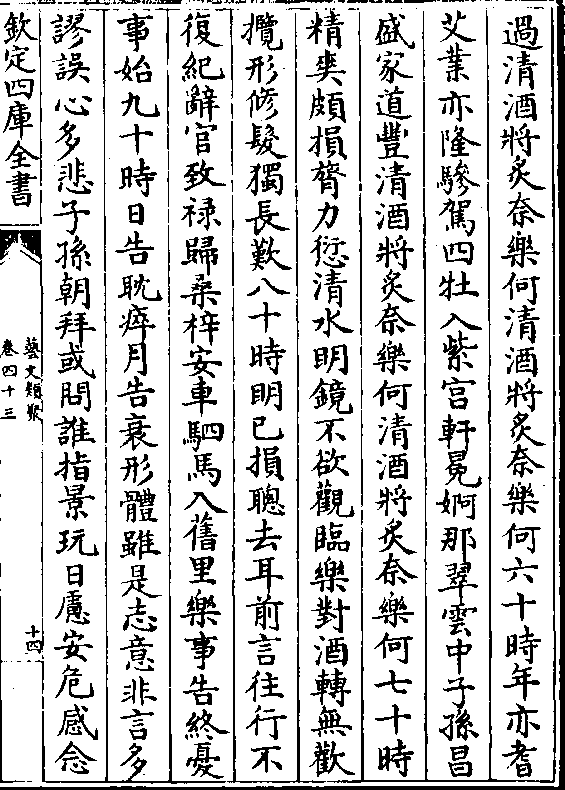 過清酒將炙奈樂何清酒將炙奈樂何六十時年亦耆
艾業亦隆驂駕四牡入紫宫軒冕婀那翠雲中子孫昌
盛家道豐清酒將炙奈樂何清酒將炙奈樂何七十時
精爽頗損膂力愆清水明鏡不欲觀臨樂對酒轉無歡
攬形修髮獨長歎八十時明已損聰去耳前言往行不
復紀辭官致禄歸桑梓安車駟馬入舊里樂事告終憂
事始九十時日告耽瘁月告衰形體雖是志意非言多
謬誤心多悲子孫朝拜或問誰指景玩日慮安危感念
欽定四庫全書
藝文類聚
卷四十三
十四